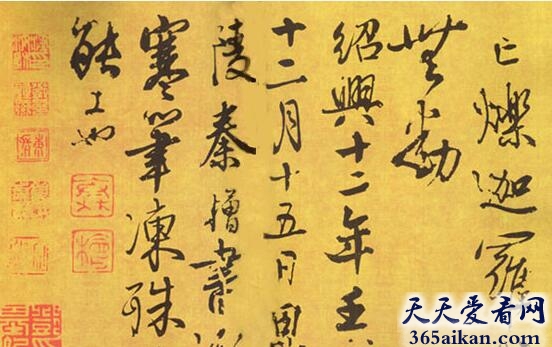 亡爍迦羅
無動
紹興十二年壬
十二月十五日
陵秦檜書
寒筆凍殊
能工也
天天爱看网
365aikan.com